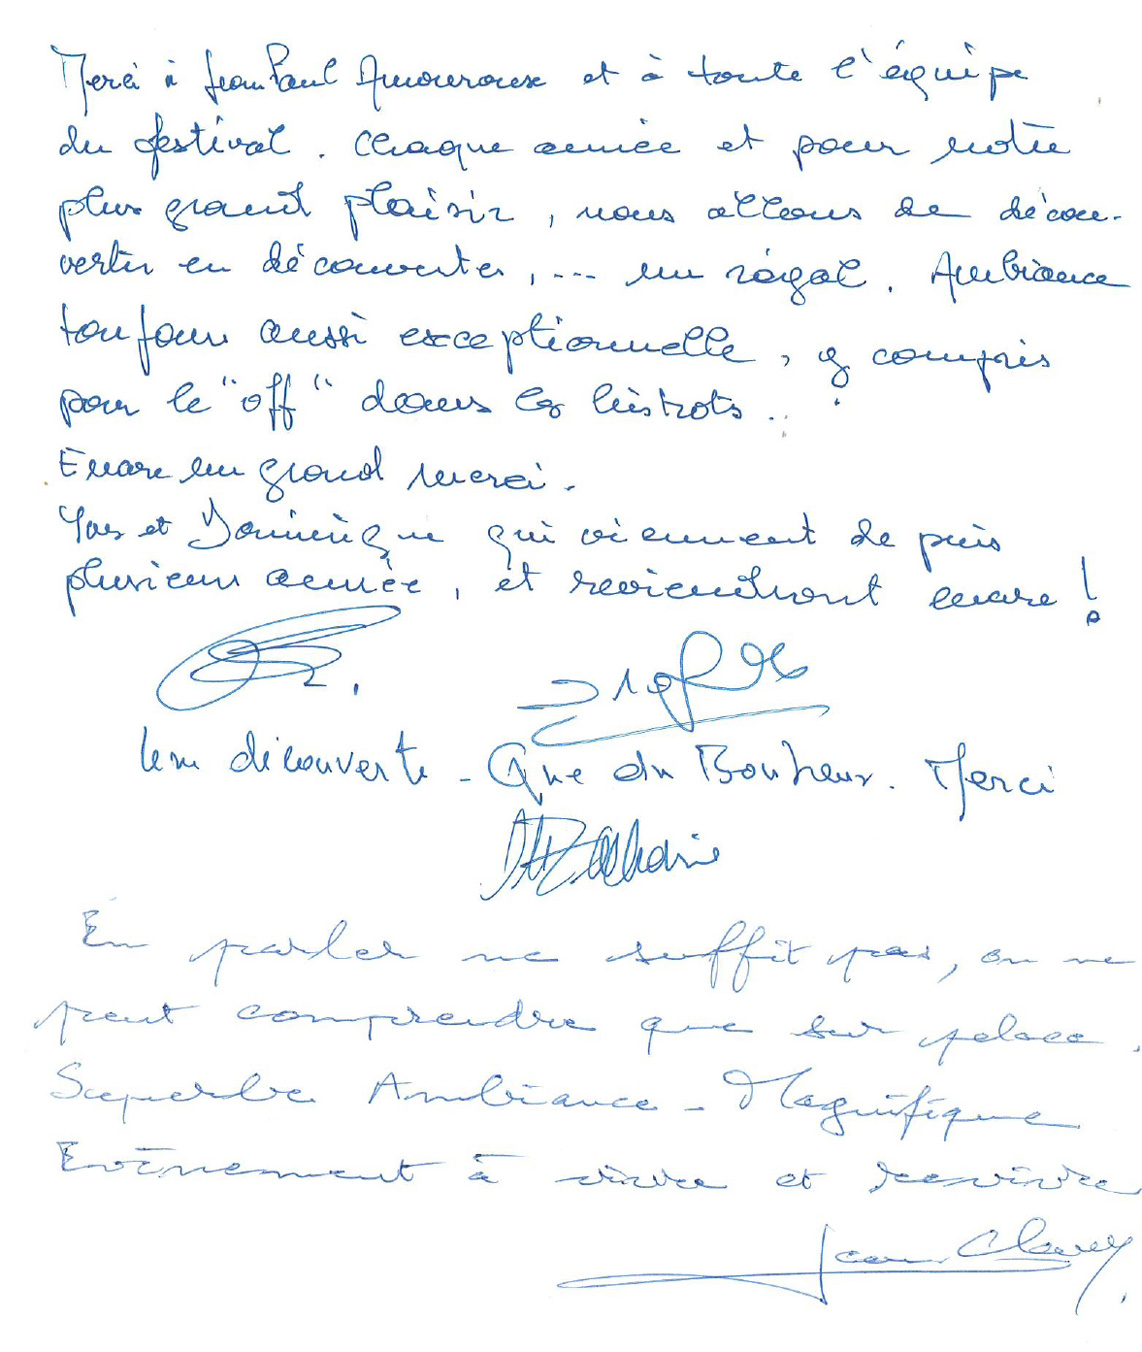 Merci à Jean Paul Amouroux et à toute l'équipe
du festival. Chaque année et pour notre
plus grand plaisir, nous allons de décou-
vertes en découvertes, ... un régal. Ambiance
toujours aussi exceptionnelle, y compris
pour le "off" dans les bistrots..
Encore un grand merci.
Yves et Dominique qui viennent depuis
plusieurs années, et reviendront encore !
Une découverte - Que du Bonheur. Merci
En parler ne suffit pas, on ne
peut comprendre que sur place.
Superbe Ambiance - Magnifique
Evènement à vivre et revivre
Jean